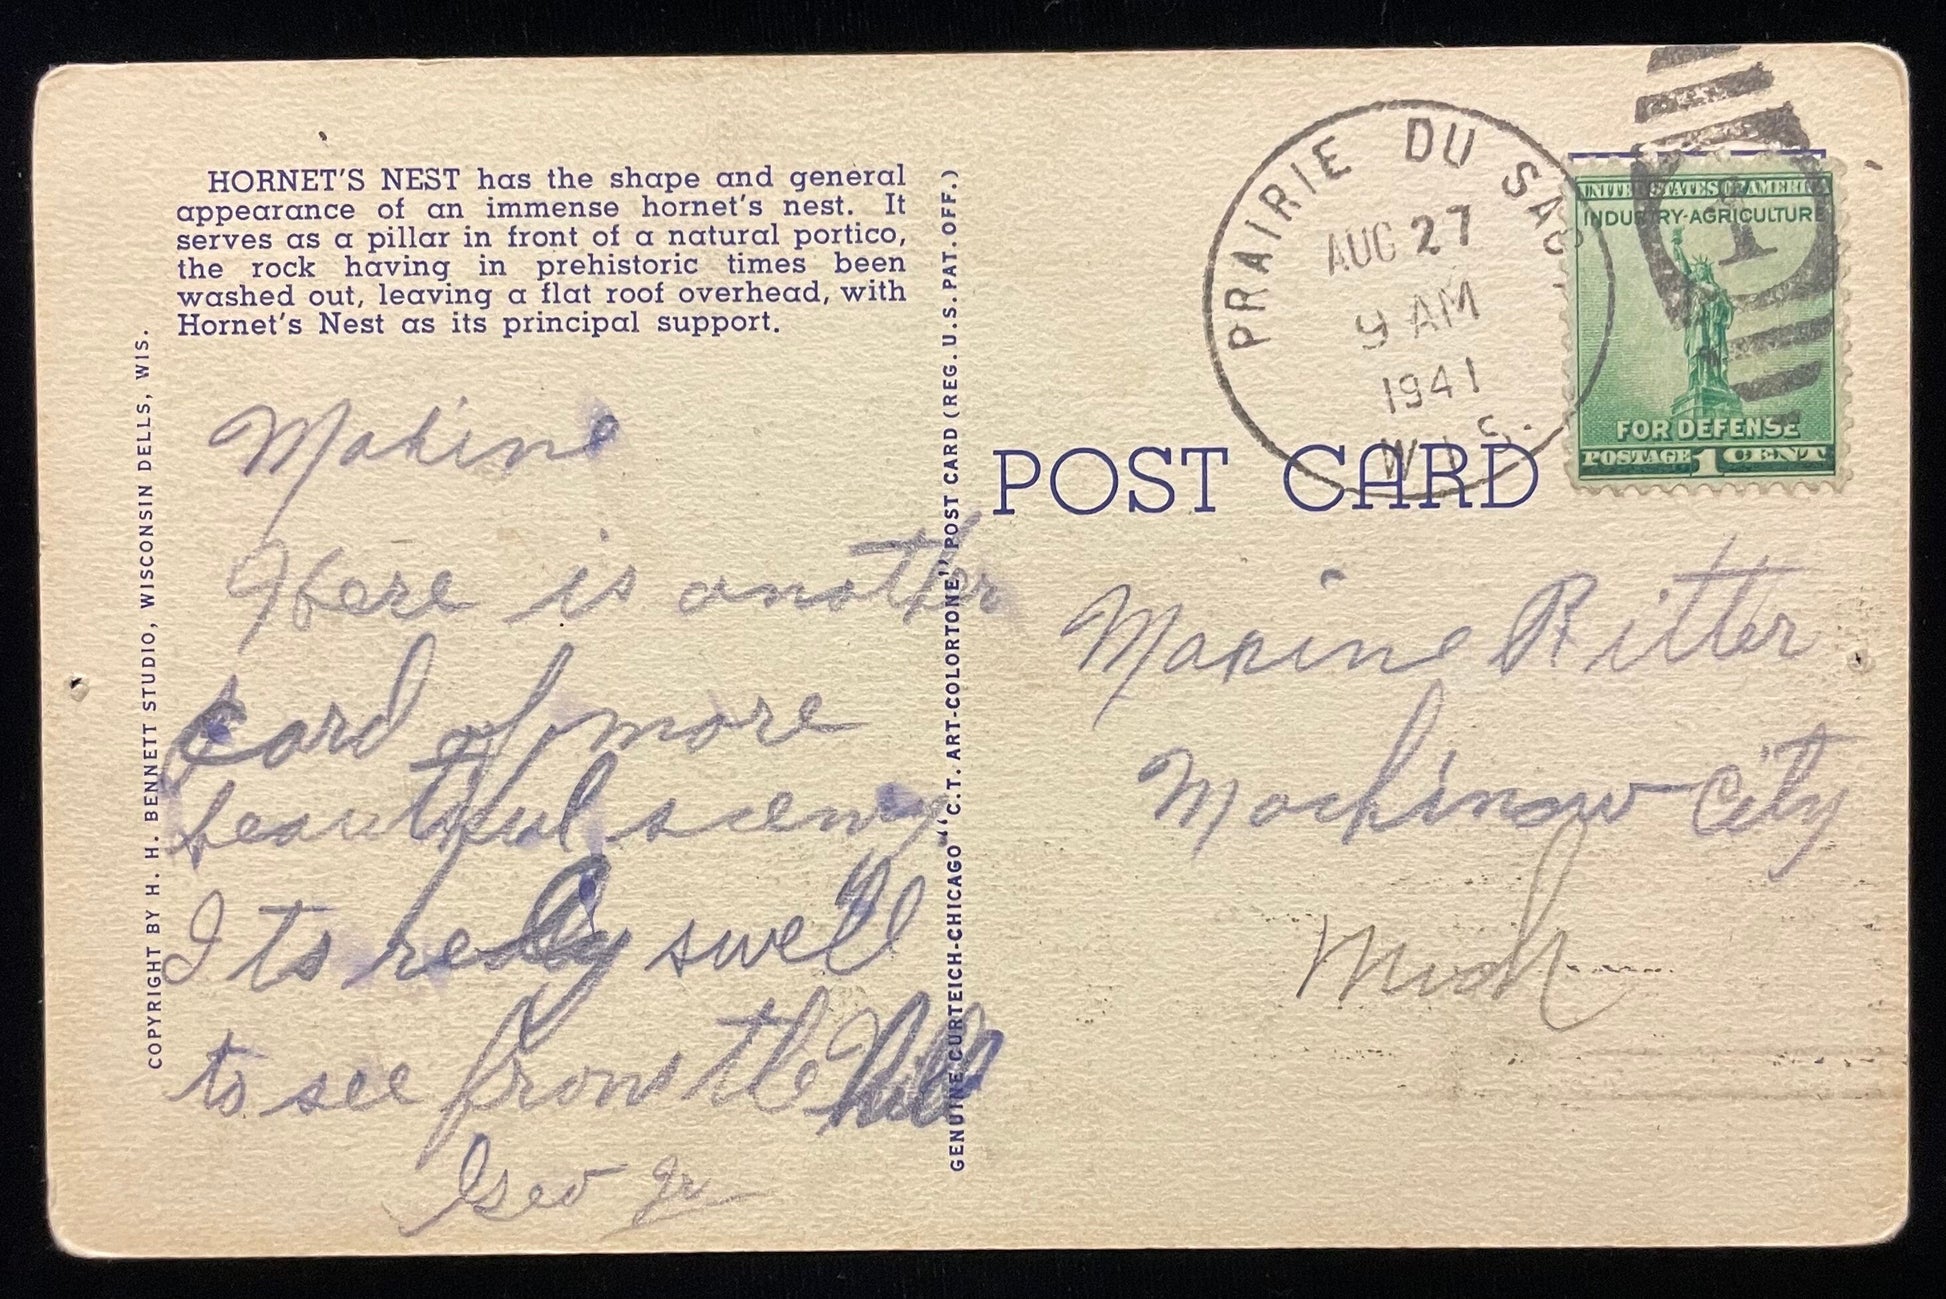 HORNET'S NEST has the shape and general
appearance of an immense hornet's nest. It
serves as a pillar in front of a natural portico,
the rock having in prehistoric times been
washed out, leaving a flat roof overhead, with
Hornet's Nest as its principal support.
COPYRIGHT BY H. H. BENNETT STUDIO, WISCONSIN DELLS, WIS.
Maxine
Here is another
card of more
beautiful scenery
Its really swell
to see from the hill
Geo Jr
GENUINE CURTEICH-CHICAGO "C.T. ART-COLORTONE" POST CARD (REG. U.S. PAT. OFF.)
PRAIRIE DU SAC
AUG 27
9 AM
1941
WIS.
UNITED STATES OF AMERICA
INDUSTRY-AGRICULTURE
1
FOR DEFENSE
POSTAGE 1 CENT
POST CARD
Maxine Ritter
Mackinaw City
Mich